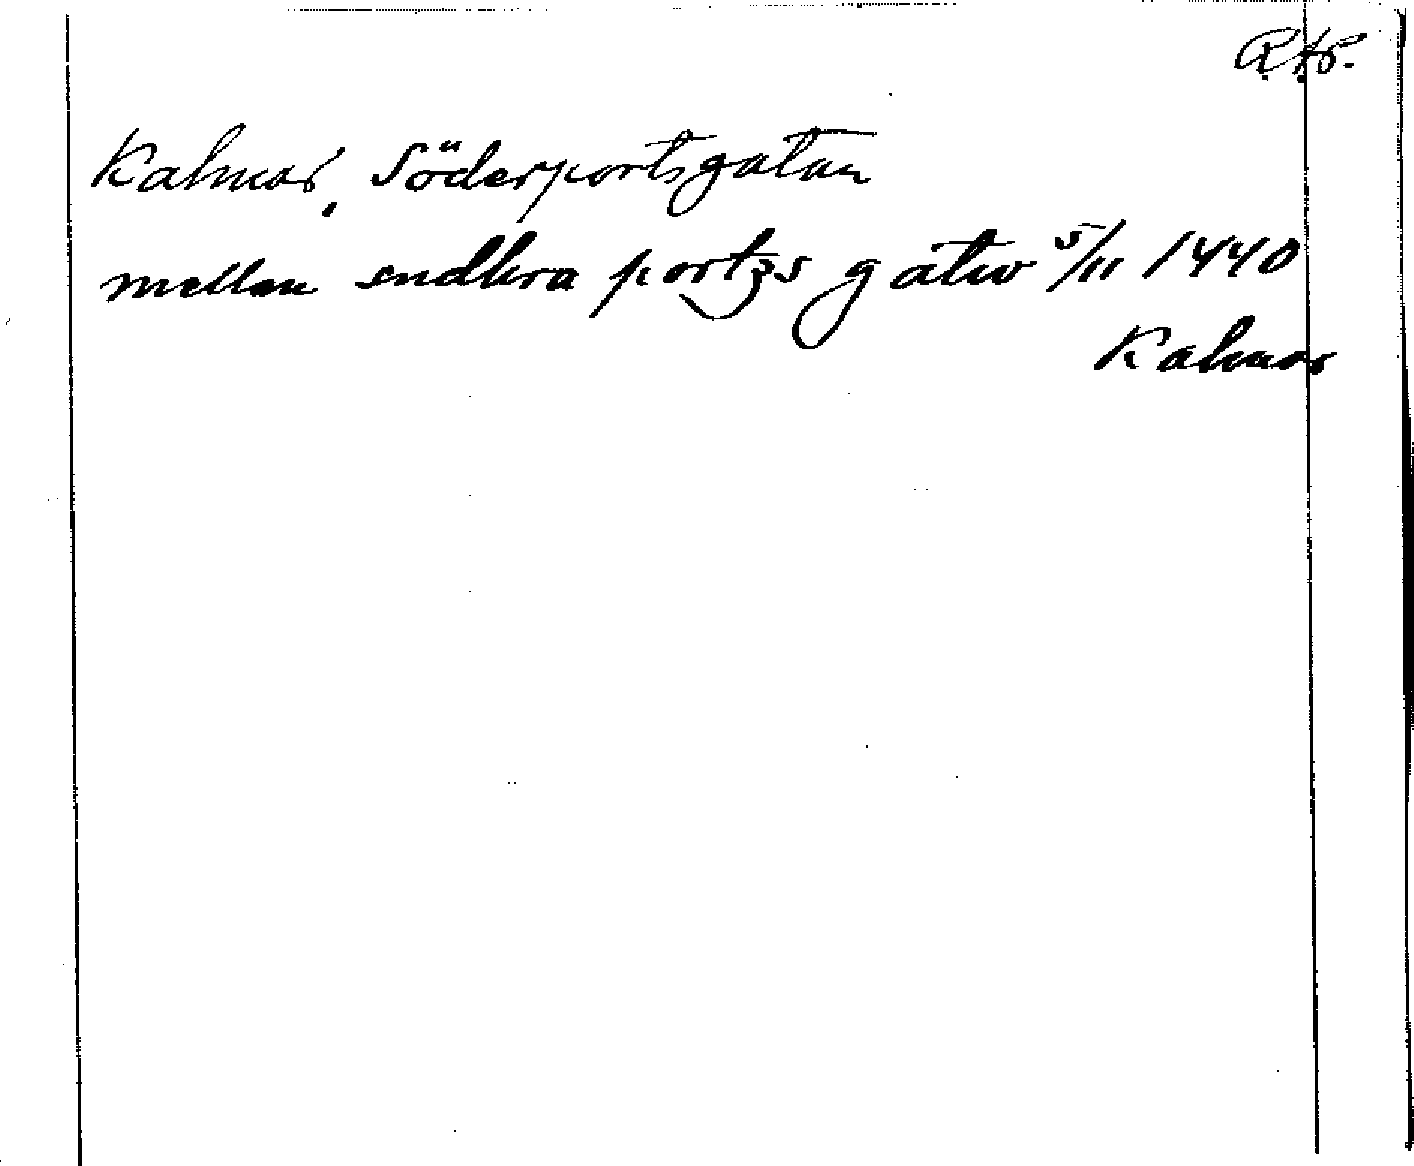 R.A.P.
Kalmar, Söderportsgatan
mellan sndhra portzs gatw 5/11 1440
Kalmar